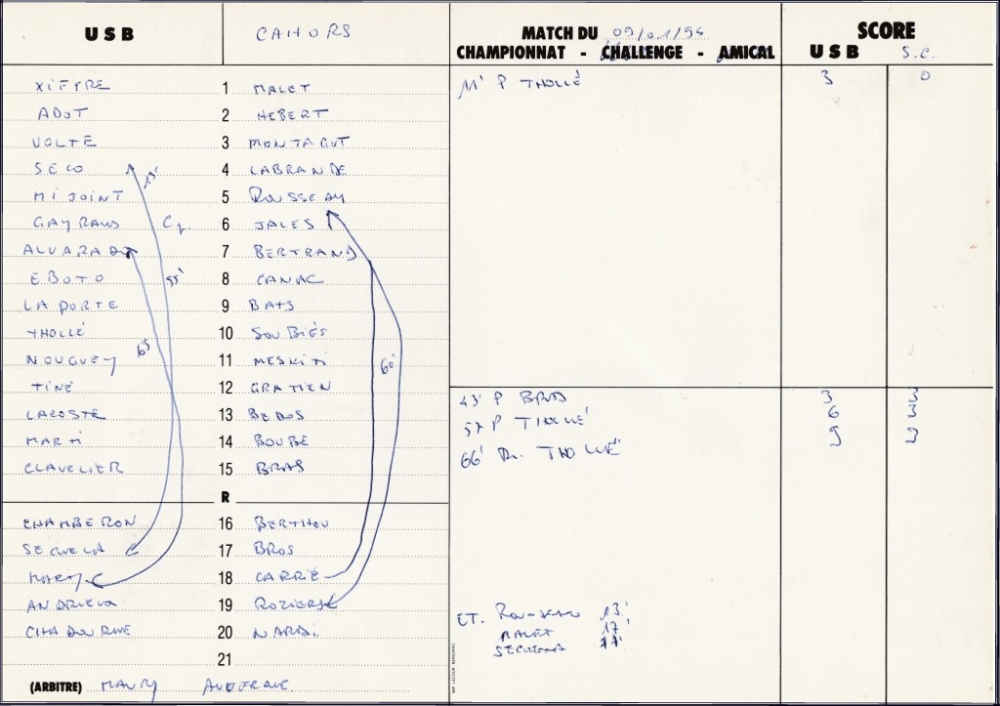 USB CAHORS MATCH DU 09/01/95 SCORE
CHAMPIONNAT - CHALLENGE - AMICAL USB S.C.
XIFFRE 1 MALET 11' P THOLLÉ 3 0
ADOT 2 HEBERT
VOLTE 3 MONTAGUT
SECO 4 LABRANDE
MIJOINT 5 ROUSSEAU
GAYRAUD 6 JALES
ALVARADO 7 BERTRAND
EBOTO 8 CANAC 55'
LAPORTE 9 BATS
THOLLÉ 10 SOUBIÉS
NOUGUEY 65' 11 MESKITI 60'
TINÉ 12 GRATIEN
LACOSTE 13 BEDOS 43' P BRAS 3 3
MARTI 14 BOUBE 57 P THOLLÉ 6 3
CLAVELIER 15 BRAS 66' Dr. THOLLÉ 9 3
R
CHAMBERON 16 BERTHOU
SEGUELA 17 BROS
MARTY 18 CARRIE
ANDRIEUX 19 ROZIERES ET. ROUSSEAU 13'
CHADOURNE 20 NARDI MALET 17'
21
(ARBITRE) MAURY AUVERGNE